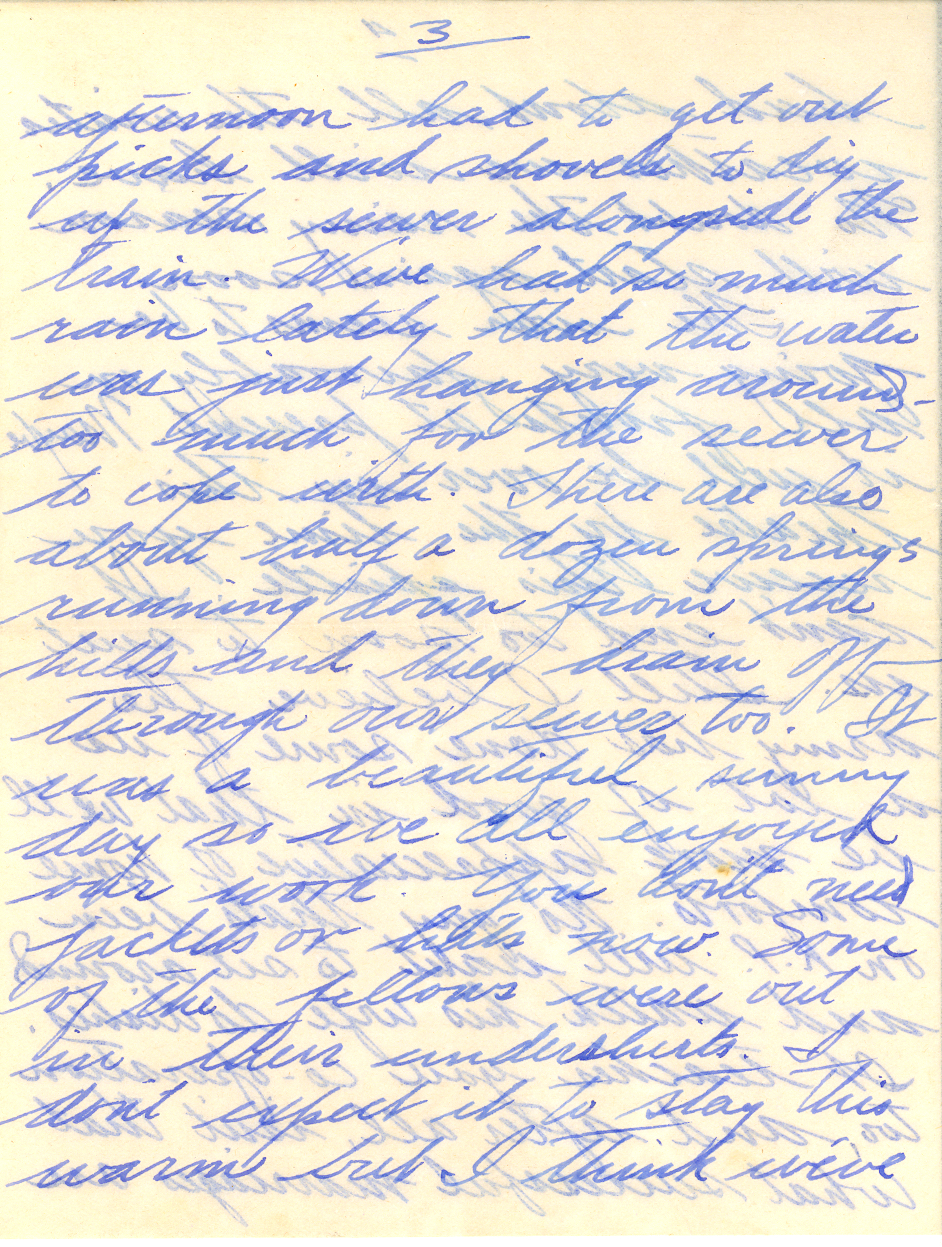 3
afternoon had to get out
picks and shovels to dig
up the sewer alongside the
train. We've had so much
rain lately that the water
was just hanging around -
too much for the sewer
to cope with. There are also
about half a dozen springs
running down from the
hills and they drain
through our sewer too. It
was a beautiful sunny
day so we all enjoyed
our work. You don't need
jackets or hats now. Some
of the fellows were out
in their undershirts. I
don't expect it to stay this
warm but I think we've